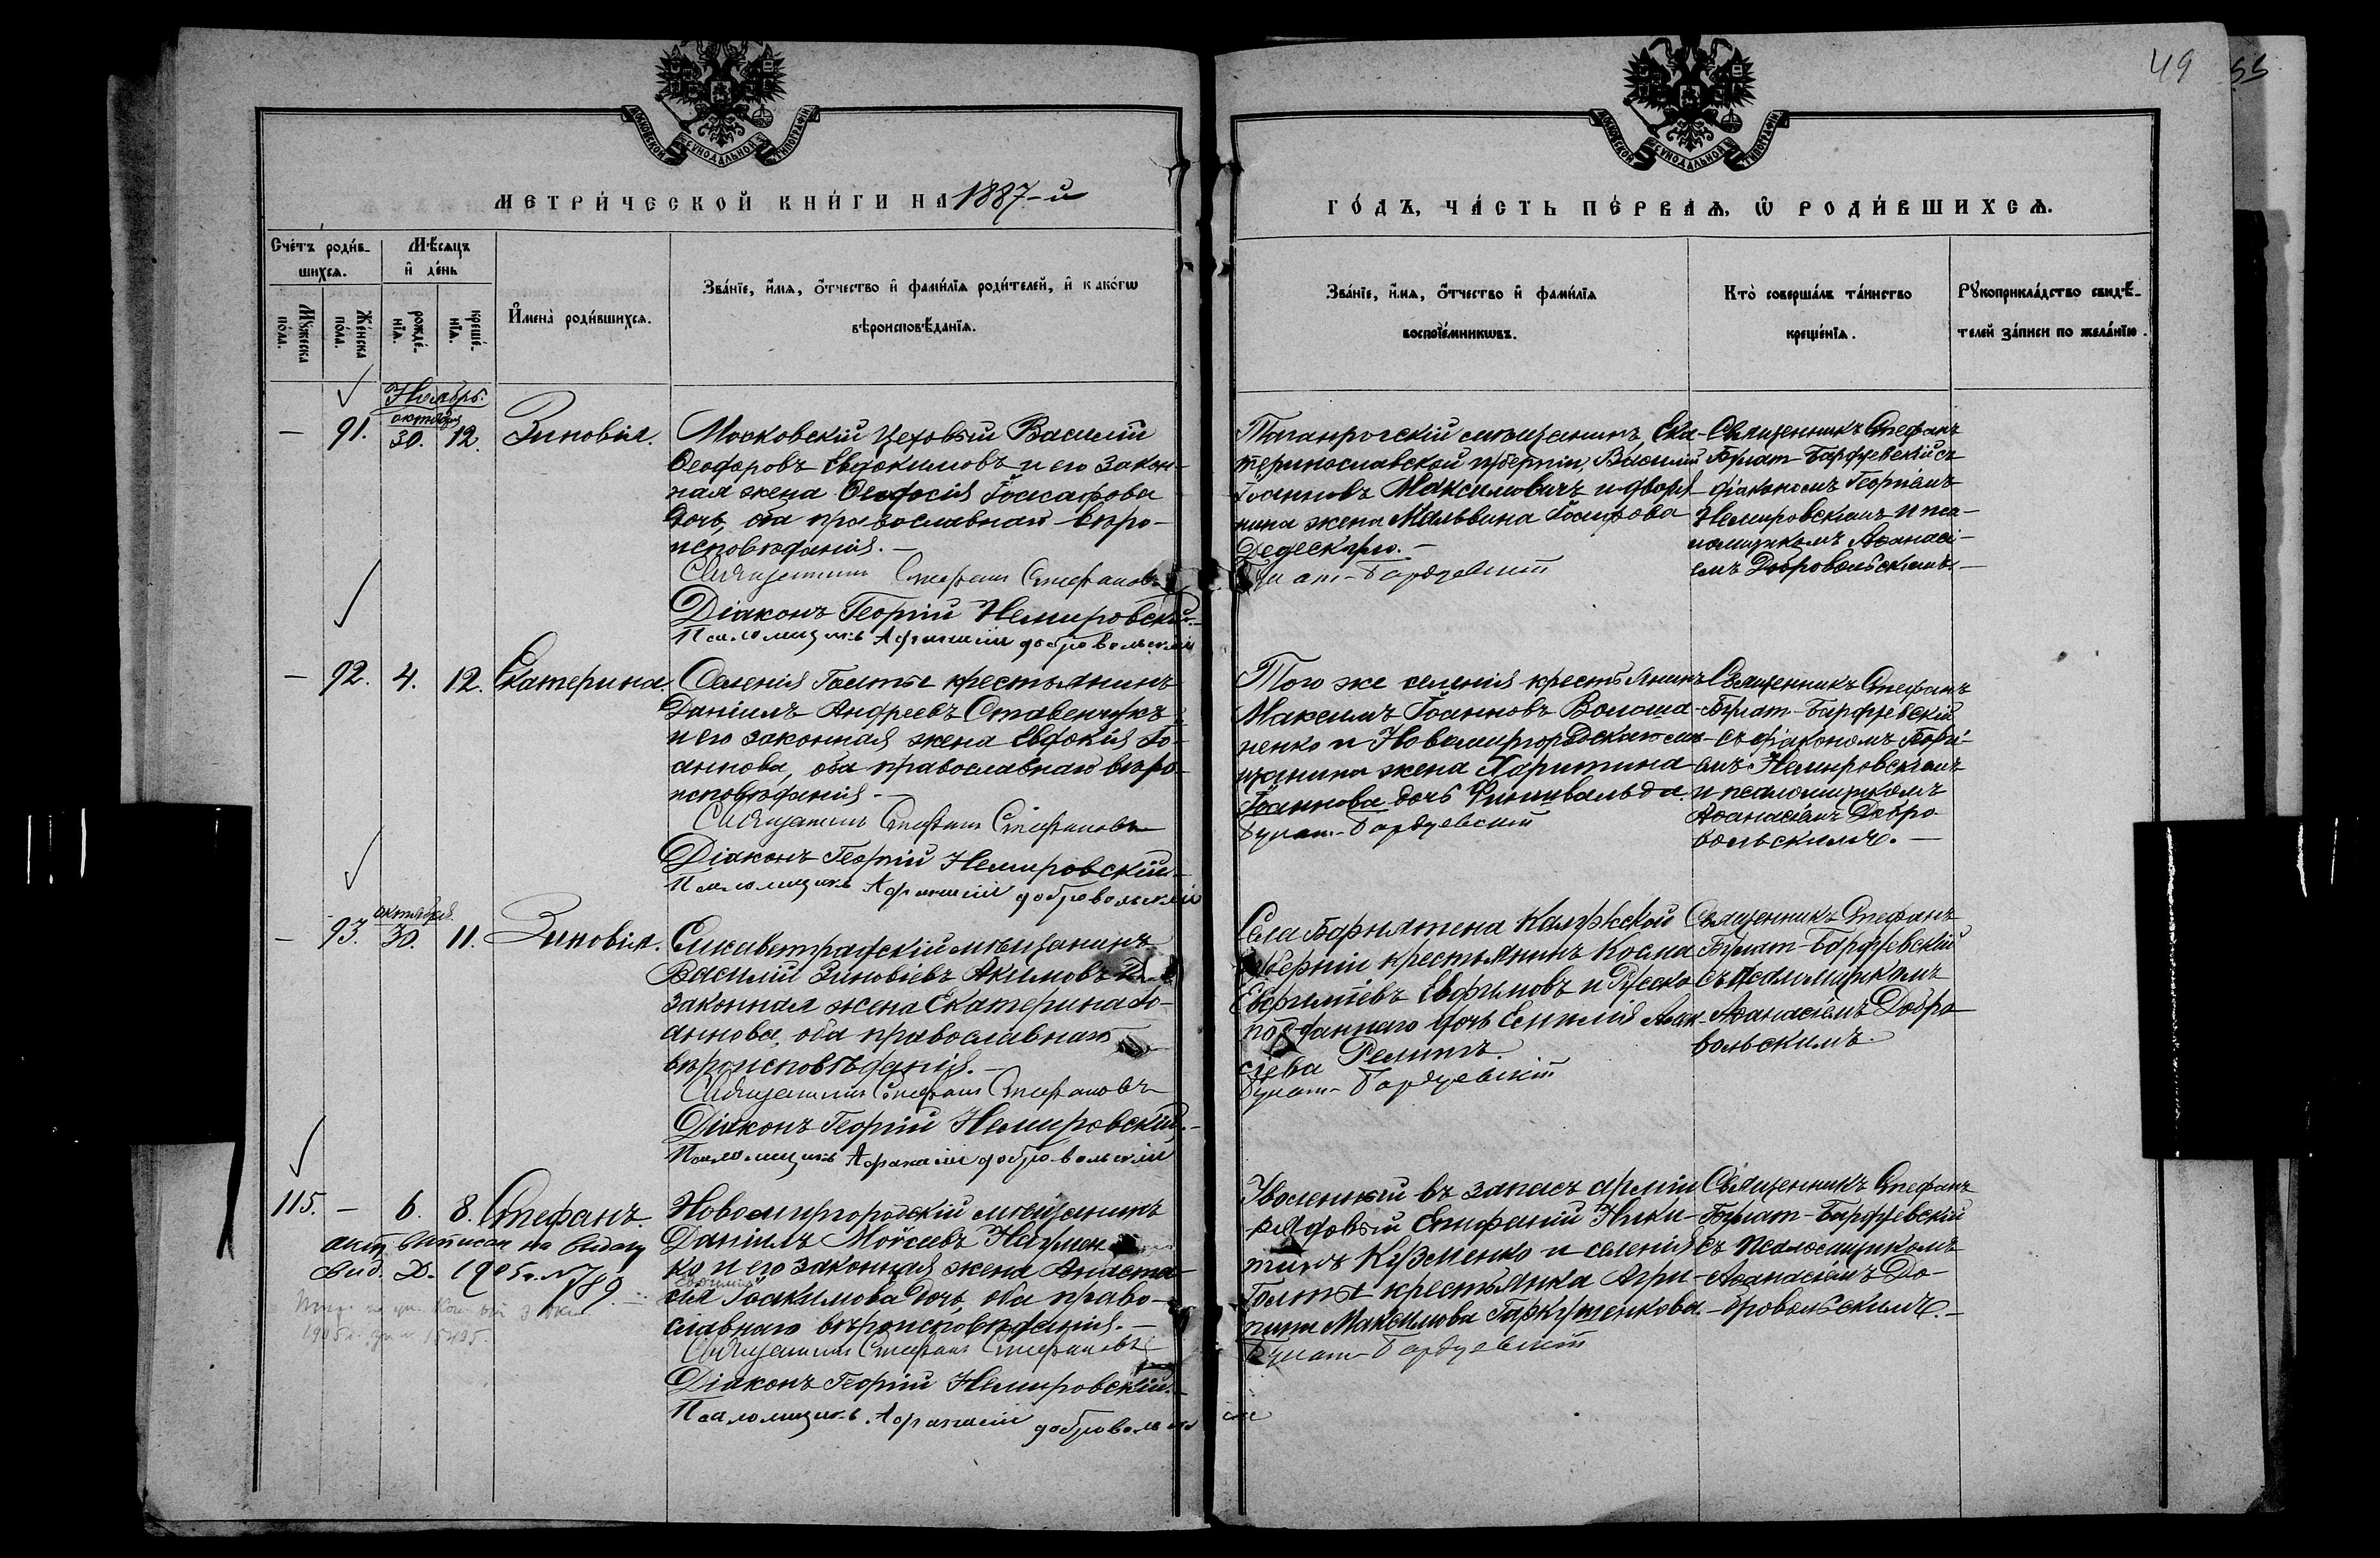 49 55
МОСКОВСКОЙ СѴНОДАЛЬНОЙ ТИПОГРАФІИ
МОСКОВСКОЙ СѴНОДАЛЬНОЙ ТИПОГРАФІИ
МЕТРИ́ЧЕСКОЙ КНИ́ГИ НА 1887-й
ГО́ДЪ, ЧА́СТЬ ПЕ́РВАѦ, Ѡ РОДИ́ВШИХСѦ.
Сче́тъ роди́в-
шихсѧ.
Мꙋ́жеска по́ла.
Же́нска по́ла.
Мѣ́сѧцъ
и де́нь
рожде́-
нїѧ.
креще́-
нїѧ.
Имена̀ роди́вшихсѧ.
Зва́нїе, и́мѧ, о́тчество и фами́лїѧ роди́телей, и како́гѡ
вѣроисповѣ́данїѧ.
Зва́нїе, и́мѧ, о́тчество и фами́лїѧ
воспрїе́мникѡвъ.
Кто̀ соверша́лъ та́инство
креще́нїѧ.
Рꙋкоприкла́дство свидѣ́-
телей за́писи по жела́нїю.
Ноябрь.
октября
— 91. 30. 12. Зиновія.
Московскій цеховый Василій
Ѳеодоровъ Евдокимовъ и его закон-
ная жена Ѳеодосія Іоасафова
дочь, оба православнаго веро-
исповѣданія. —
Священникъ Стефанъ Стефановъ
Діаконъ Георгій Немировскій. —
Псаломщикъ Афанасій Добровольскій
Таганрогскій мѣщанинъ, Ека-
теринославской губерніи, Василій
Іоанновъ Максимовичъ и дворя-
нина жена Мальвина
Булат-Бардуевскій
Священникъ Стефанъ
Булат-Бардуевскій съ
діакономъ Георгіемъ
Немировскимъ и пса-
ломщикомъ Аѳанасі-
емъ Добровольскимъ. —
— 92. 4. 12. Екатерина.
Селенія Голты крестьянинъ
Даніилъ Андреевъ Ставенчукъ
и его законная жена Евдокія Іо-
аннова, оба православнаго вѣро-
исповѣданія. —
Священникъ Стефанъ Стефановъ
Діаконъ Георгій Немировскій. —
Псаломщикъ Афанасій Добровольскій
Того же селенія крестьянинъ
Максимъ Іоанновъ Волоша-
ненко и Новомиргородскаго мѣ-
щанина жена Харитина
Іоаннова дочь
Булат-Бардуевскій
Священникъ Стефанъ
Булат-Бардуевскій
съ діакономъ Георгі-
емъ Немировскимъ
и псаломщикомъ
Аѳанасіемъ Добро-
вольскимъ. —
октября
— 93. 30. 11. Зиновія.
Елисаветградскій мѣщанинъ
Василій Зиновіевъ Акимовъ
законная жена Екатерина Іо-
аннова, оба православнаго
вѣроисповѣданія. —
Священникъ Стефанъ Стефановъ
Діаконъ Георгій Немировскій. —
Псаломщикъ Афанасій Добровольскій
Села Барятена Калужской
губерніи крестьянинъ Косма
Евфиміевъ Евфимовъ и Руско
подданнаго дочь Емилія
Булат-Бардуевскій
Священникъ Стефанъ
Булат-Бардуевскій
съ псаломщикомъ
Аѳанасіемъ Добро-
вольскимъ.
115. — 6. 8. Стефанъ.
1905 г. № 789.
Новомиргородскій мѣщанинъ
Даніилъ Моисеевъ Наумен
ко и его законная жена Анаста-
сія Іоакимова дочь, оба право-
славнаго вѣроисповѣданія. —
Священникъ Стефанъ Стефановъ
Діаконъ Георгій Немировскій. —
Псаломщикъ Афанасій Добровольскій
Уволенный въ запасъ арміи
рядовый Епифаній Ники-
тинъ Кузменко и селенія
Голты крестьянка Агри-
пина Максимова Гаркушенкова. —
Булат-Бардуевскій
Священникъ Стефанъ
Булат-Бардуевскій
съ псаломщикомъ
Аѳанасіемъ До-
бровольскимъ. —